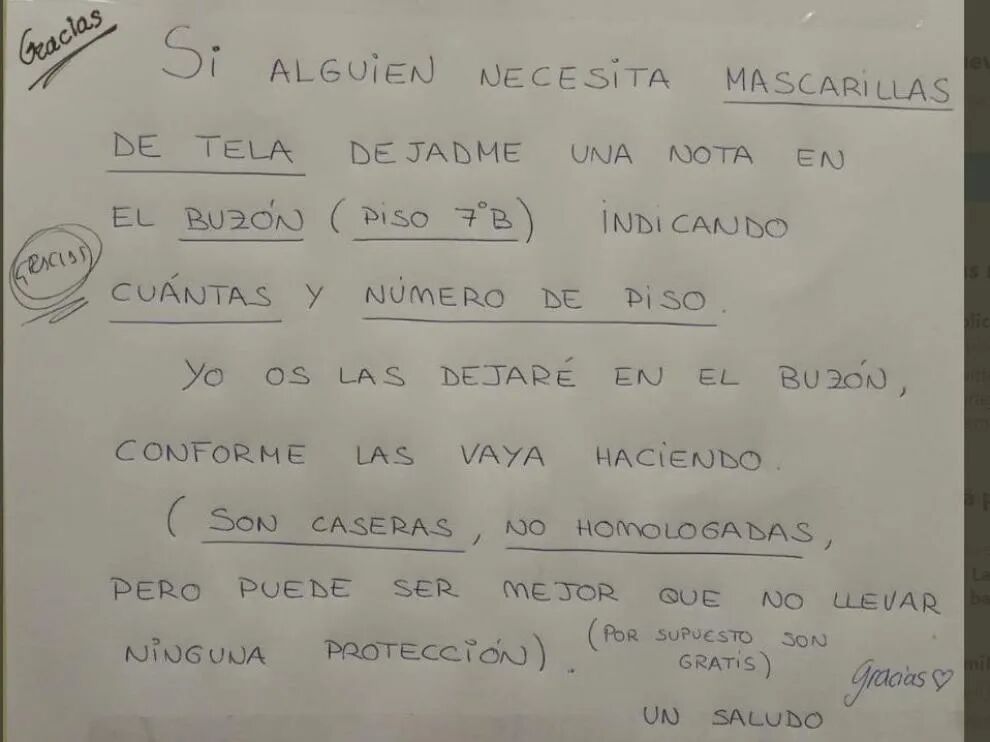 Gracias
Si ALGUiEN NECESiTA MASCARiLLAS
DE TELA DEJADME UNA NOTA EN
EL BUZÓN (PiSO 7ºB) iNDiCANDO
GRACIAS
CUÁNTAS Y NÚMERO DE PiSO.
YO OS LAS DEJARÉ EN EL BUZÓN,
CONFORME LAS VAYA HACiENDO.
(SON CASERAS, NO HOMOLOGADAS,
PERO PUEDE SER MEJOR QUE NO LLEVAR
NiNGUNA PROTECCiÓN). (POR SUPUESTO SON
GRATiS)
Gracias♡
UN SALUDO